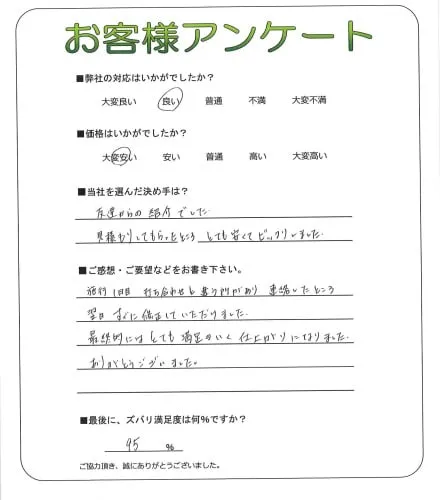 お客様アンケート
■弊社の対応はいかがでしたか？
大変良い 良い 普通 不満 大変不満
■価格はいかがでしたか？
大変安い 安い 普通 高い 大変高い
■当社を選んだ決め手は？
友達からの紹介でした。
見積もりしてもらったところ とても安くてビックリしました。
■ご感想・ご要望などをお書き下さい。
施行1日目 打ち合わせと違う所があり 連絡したところ
翌日 すぐに修正していただけました。
最終的には とても満足のいく 仕上がりになりました。
ありがとうございました。
■最後に、ズバリ満足度は何％ですか？
95 %
ご協力頂き、誠にありがとうございました。